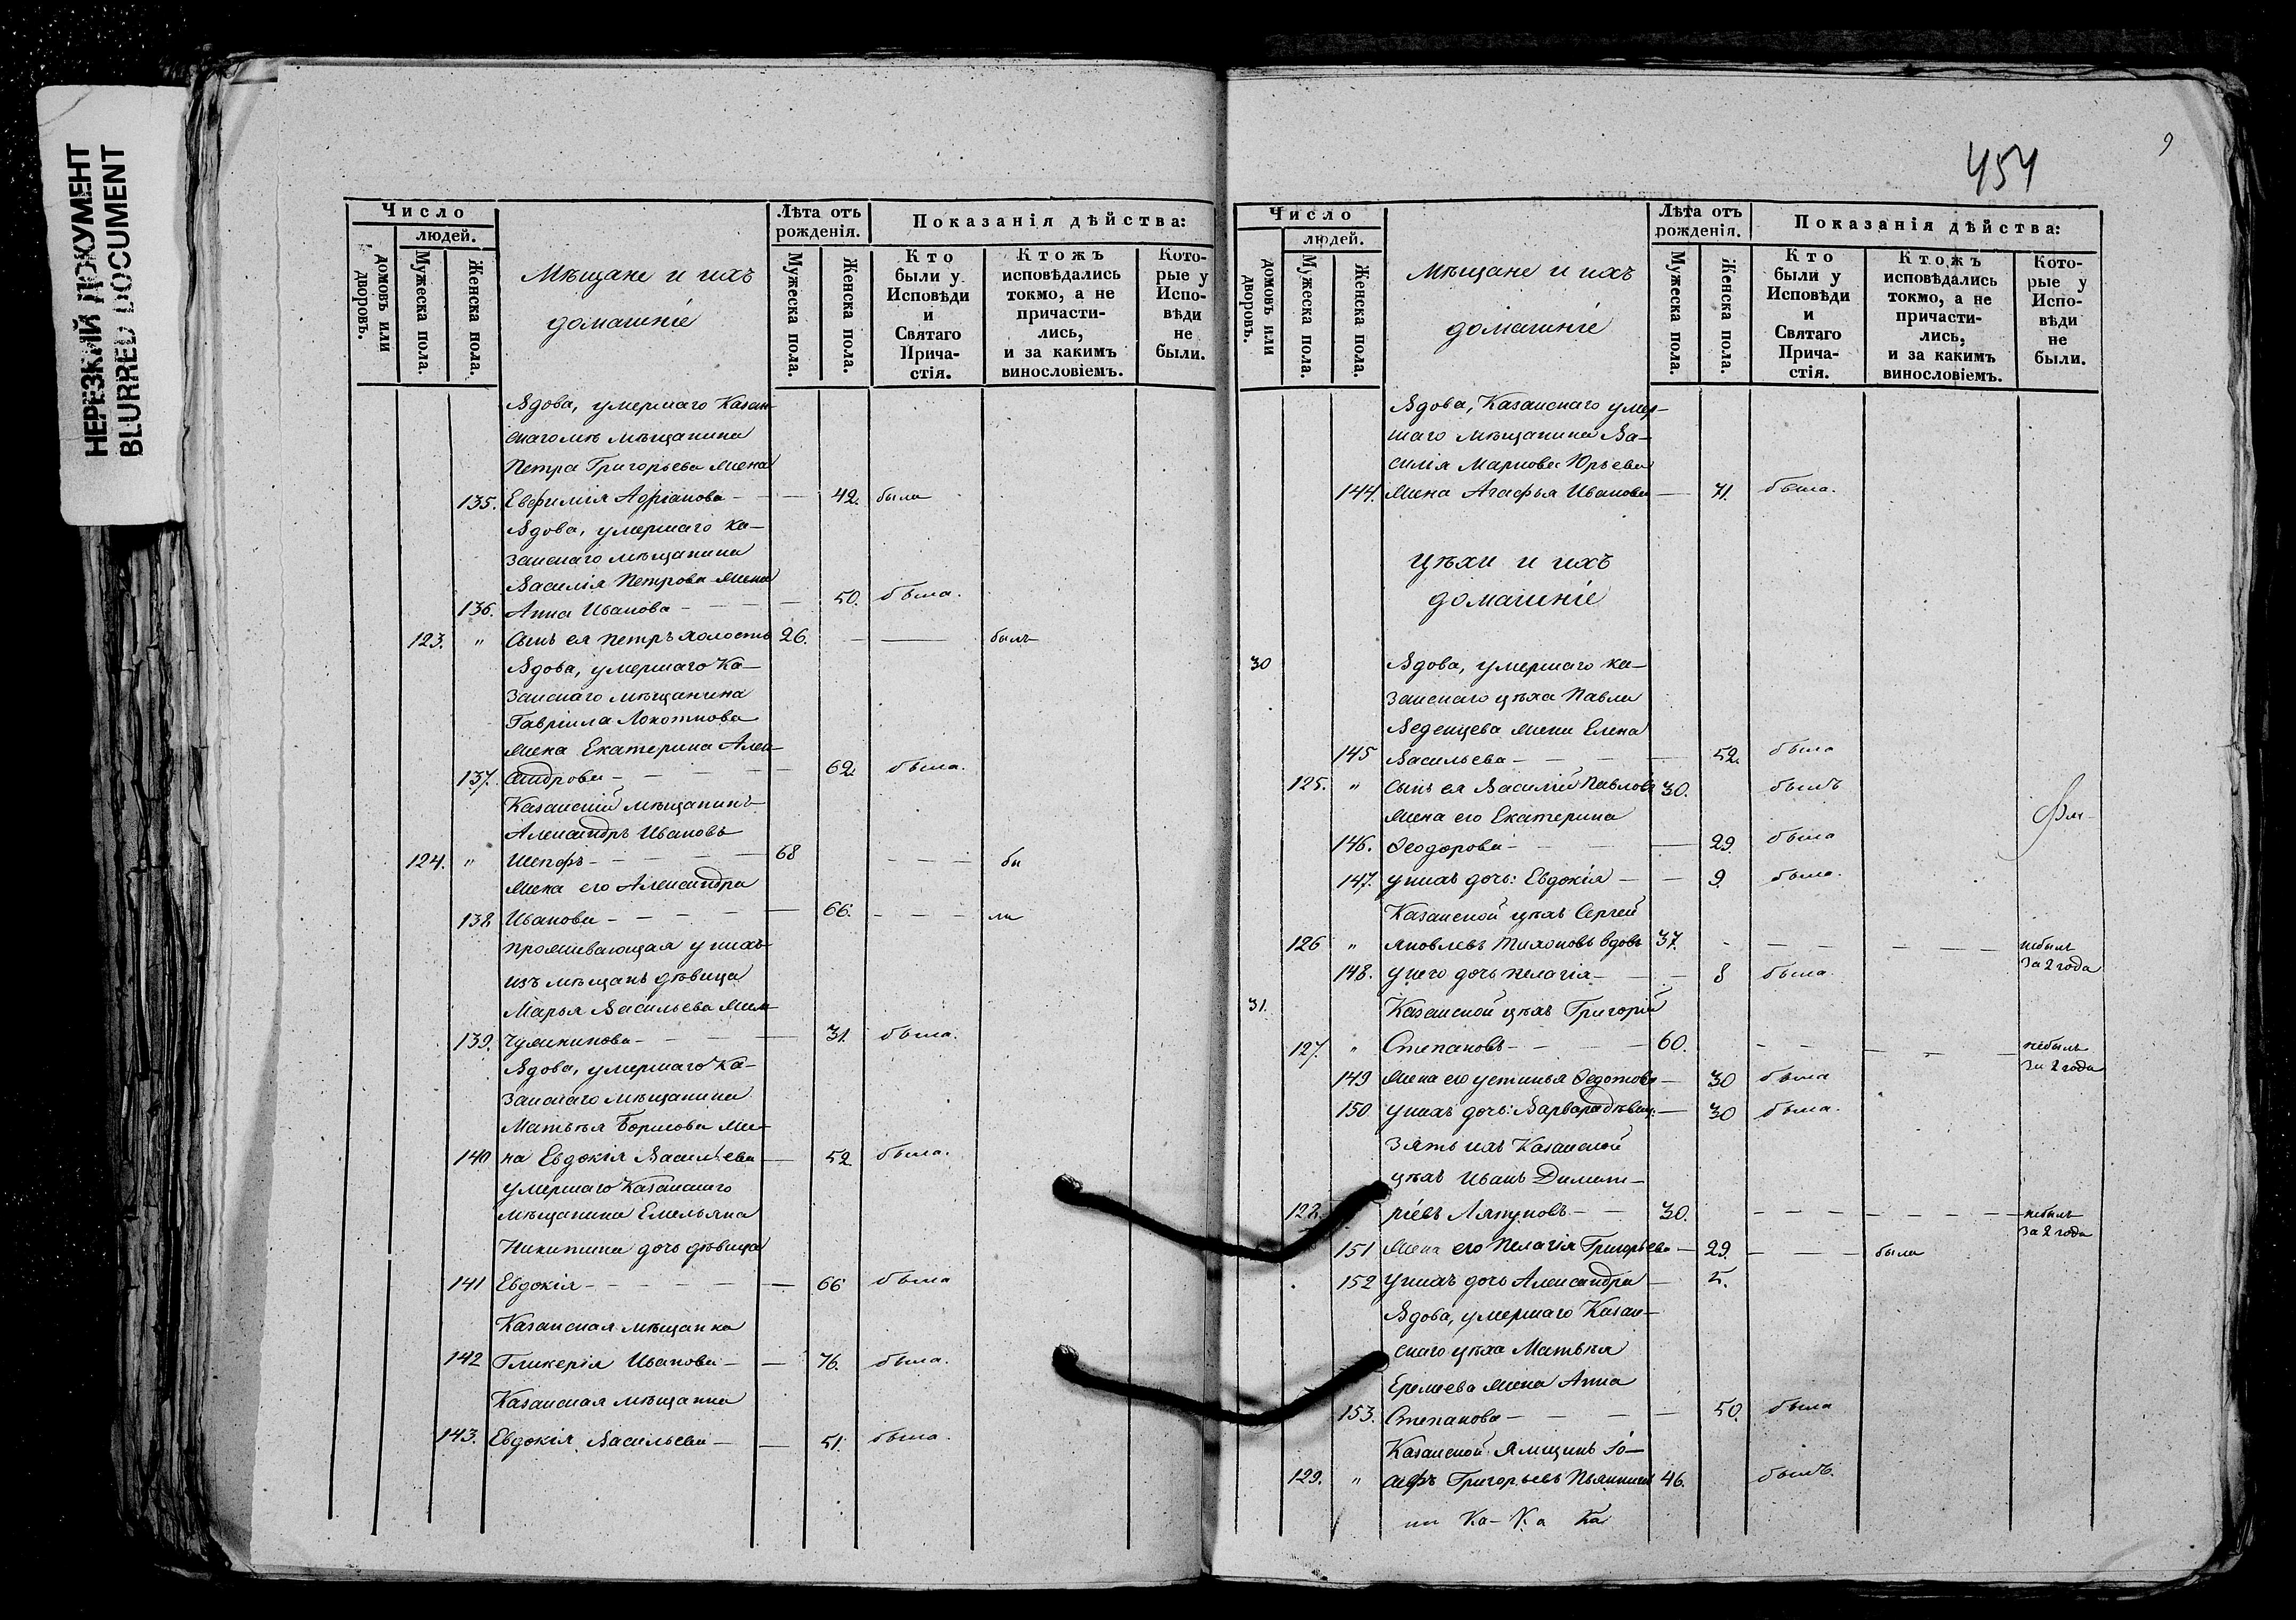 НЕРЕЗКИЙ ДОКУМЕНТ
BLURRED DOCUMENT
Число
людей.
домовъ или дворовъ.
Мужеска пола.
Женска пола.
Мѣщане и ихъ
домашніе
Лѣта отъ рожденія.
Мужеска пола.
Женска пола.
Показанія дѣйства:
Кто были у Исповѣди и Святаго Прича-стія.
Ктожъ исповѣдались токмо, а не причасти-лись, и за какимъ винословіемъ.
Кото-рые у Испо-вѣди не были.
Вдова, умершаго Казан-
скаго мѣщанина
Петра Григорьева жена
135. Евфимія Адріанова 42. была
Вдова, умершаго Ка-
занскаго мѣщанина
Василія Петрова жена
136. Анна Иванова 50. была.
123. " Сынъ ея Петръ холостъ 26. былъ
Вдова, умершаго Ка-
занскаго мѣщанина
Гавріила Локоткова
жена Екатерина Алек-
137. сандрова 62. была.
Казанскій мѣщанинъ
Александръ Ивановъ
124. " 68 бы
Жена его Александра
138 Иванова 66. ли
Проживающая у нихъ
изъ мѣщанъ дѣвица
Марья Васильева
139. 31. была.
Вдова, умершаго Ка-
занскаго мѣщанина
Матвѣя Борисова же-
140 на Евдокія Васильева 52 была.
умершаго Казанскаго
мѣщанина Емельяна
Никитина дочь дѣвица
141 Евдокія 66 была
Казанская мѣщанка
142 Гликерія Иванова 76. была.
Казанская мѣщанка
143. Евдокія Васильева 51. была.
454
9
Число
людей.
домовъ или дворовъ.
Мужеска пола.
Женска пола.
Мѣщане и ихъ
домашніе
Лѣта отъ рожденія.
Мужеска пола.
Женска пола.
Показанія дѣйства:
Кто были у Исповѣди и Святаго Прича-стія.
Ктожъ исповѣдались токмо, а не причасти-лись, и за какимъ винословіемъ.
Кото-рые у Испо-вѣди не были.
Вдова, Казанскаго умер-
шаго мѣщанина Ва-
силія Маркова Юрьева
144. жена Агафья Иванова 71. была.
Цѣхи и ихъ
домашніе
30 Вдова, умершаго ка-
занскаго цѣха Павла
Веденцева жена Елена
145 Васильева 52. была
125. " Сынъ ея Василій Павловъ 30. былъ
Жена его Екатерина
146. Ѳеодорова 29. была
147. у нихъ дочь: Евдокія 9. была.
Казанской цѣхъ Сергей
126 " Яковлевъ Тихоновъ вдовъ 37. небылъ
за 2 года
148. у него дочь Пелагія 8 была.
31. Казанской цѣхъ Григорій
127. " Степановъ 60. небылъ
за 2 года
149 Жена его Устинья Ѳедотова 30 была
150 у нихъ дочь: Варвара дѣвиц: 30 была.
Зять ихъ Казанской
цѣхъ Иванъ Димит-
128. ріевъ Ляпуновъ 30. небылъ
за 2 года
151 Жена его Пелагія Григорьева 29. была
152 у нихъ дочь Александра
Вдова, умершаго Казан-
скаго цѣха Матвѣя
Еремеева жена Анна
153. Степанова 50. была
Казанской Ямщикъ Іо-
129. " сифъ Григорьевъ 46. былъ.
Ка- Ка Ка